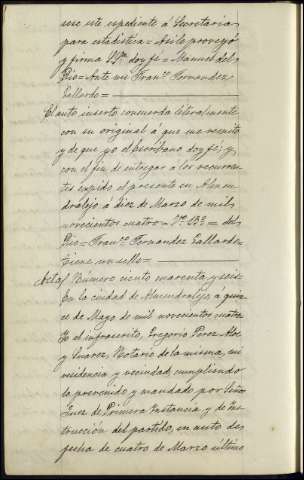 use este espediente á Secretaria
para estadistica = Asi lo proveyó
y firma S.S.ª doy fe = Manuel del
Rio = Ante mi Fran.co Fernandez
Gallardo =
El auto inserto concuerda literalmente
con su original á que me remito
y de que yo el Escribano doy fé; y
con el fin de entregar á los recurren-
tes expido el presente en Almen-
dralejo á diez de Marzo de mil
novecientos cuatro = Vº Bº = del
Rio = Fran.co Fernandez Gallardo =
Tiene un sello =
Acta / Número ciento cuarenta y seis
En la ciudad de Almendralejo, á quin-
ce de Mayo de mil novecientos cuatro
Yo el infrascrito, Gregorio Perez
y Suarez, Notario de la misma, mi
residencia y vecindad, cumpliendo
lo prevenido y mandado por Señor
Juez de Primera Instancia y de Ins-
trucción del partido, en auto de
fecha de cuatro de Marzo último